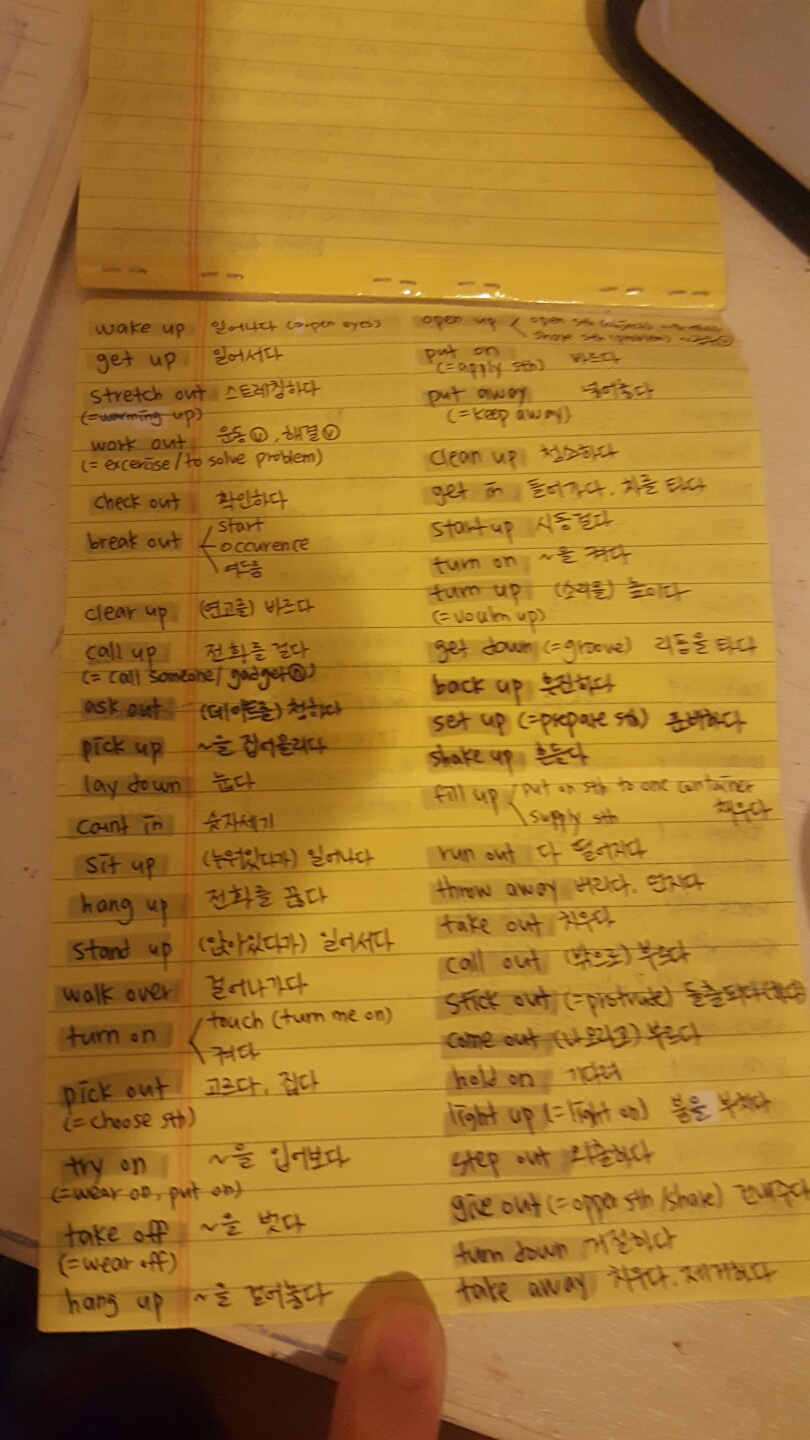 wake up 일어나다 (=open eyes)
get up 일어서다
stretch out 스트레칭하다
(=warming up)
work out 운동ⓥ, 해결ⓥ
(= excercise/to solve problem)
check out 확인하다
start
break out occurence
여드름
clear up (연고를) 바르다
call up 전화를 걸다
(= call someone/ gadgetⓝ)
ask out (데이트를) 청하다
pick up ~을 집어올리다
lay down 눕다
count in 숫자세기
sit up (누워있다가) 일어나다
hang up 전화를 끊다
stand up (앉아있다가) 일어서다
walk over 걸어나가다
turn on touch (turn me on)
켜다
pick out 고르다, 집다
(= choose sth)
try on ~을 입어보다
(=wear on, put on)
take off ~을 벗다
(=wear off)
hang up ~을 걸어놓다
open up open sth
share sth (problem)
put on 바르다
(=apply sth)
put away 넣어놓다
(=keep away)
clean up 청소하다
get in 들어가다, 차를 타다
start up 시동걸다
turn on ~을 켜다
turn up (소리을) 높이다
(=voulm up)
get down (=groove) 리듬을 타다
back up 후진하다
set up (=prepare sth) 준비하다
shake up 흔들다
fill up put on sth to one container
supply sth 채우다
run out 다 떨어지다
throw away 버리다, 던지다
take out 치우다
call out (밖으로) 부르다
stick out (=protrude) 돌출되다
come out (나오라고) 부르다
hold on 기다려
light up (=light on) 불을 부치다
step out 외출하다
give out (=opper sth/share) 건네주다
turn down 거절하다
take away 치우다, 제거하다